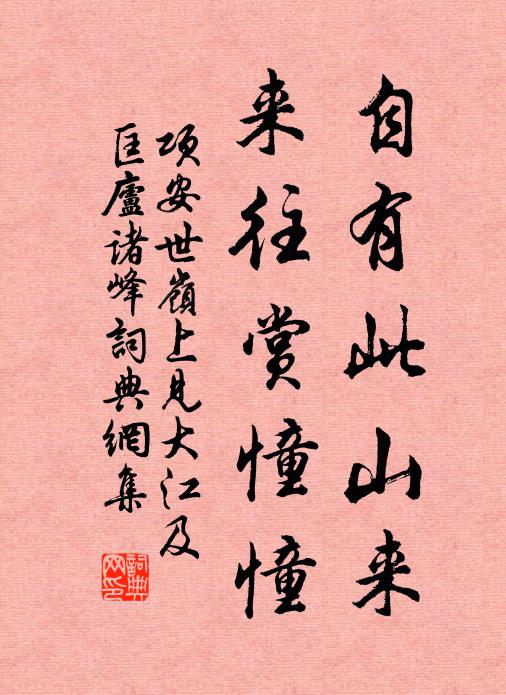 自有此山来
来往赏憧憧
项安世嶺上见大江及
匡廬诸峰詞典網集
詞典网印